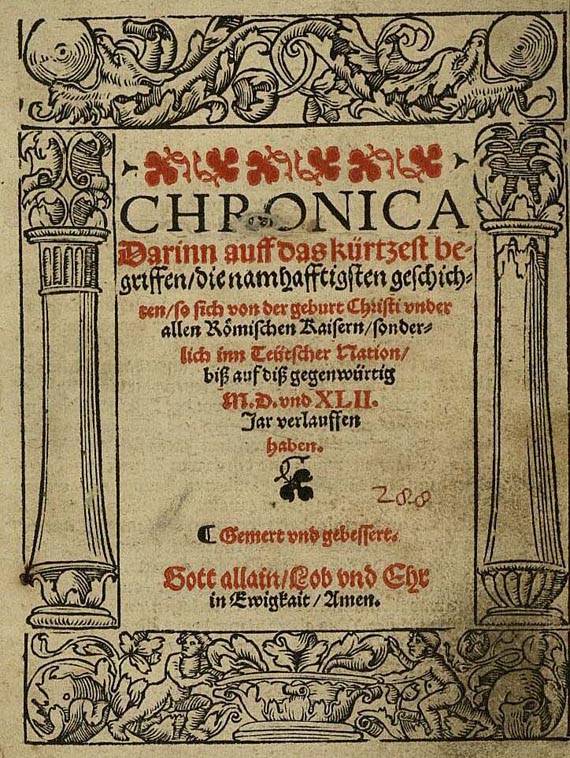 CHRONICA
Darinn auff das kürtzest be-
griffen/die namhafftigsten geschich-
ten/so sich von der geburt Christi vnder
allen Römischen Kaisern/sonder-
lich inn Teütscher Nation/
biß auf diß gegenwürtig
M.D.vnd XLII.
Jar verlauffen
haben.
288
C Gemert vnd gebessert.
Gott allain/Lob vnd Ehr
in Ewigkait/Amen.